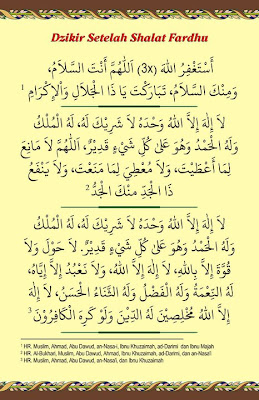 Dzikir Setelah Shalat Fardhu
أَسْتَغْفِرُ اللهَ (3x) اَللّٰهُمَّ أَنْتَ السَّلاَمُ،
وَمِنْكَ السَّلاَمُ، تَبَارَكْتَ يَا ذَا الْجَلاَلِ وَاْلإِكْرَامِ 1
لاَ إِلٰهَ إِلاَّ اللهُ وَحْدَهُ لاَ شَرِيْكَ لَهُ، لَهُ الْمُلْكُ
وَلَهُ الْحَمْدُ وَهُوَ عَلَىٰ كُلِّ شَيْءٍ قَدِيْرٌ، اَللّٰهُمَّ لاَ مَانِعَ
لِمَا أَعْطَيْتَ، وَلاَ مُعْطِيَ لِمَا مَنَعْتَ، وَلاَ يَنْفَعُ
ذَا الْجَدِّ مِنْكَ الْجَدُّ 2
لاَ إِلٰهَ إِلاَّ اللهُ وَحْدَهُ لاَ شَرِيْكَ لَهُ، لَهُ الْمُلْكُ
وَلَهُ الْحَمْدُ وَهُوَ عَلَىٰ كُلِّ شَيْءٍ قَدِيْرٌ. لاَ حَوْلَ وَلاَ
قُوَّةَ إِلاَّ بِاللهِ، لاَ إِلٰهَ إِلاَّ اللهُ، وَلاَ نَعْبُدُ إِلاَّ إِيَّاهُ،
لَهُ النِّعْمَةُ وَلَهُ الْفَضْلُ وَلَهُ الثَّنَاءُ الْحَسَنُ، لاَ إِلٰهَ
إِلاَّ اللهُ مُخْلِصِيْنَ لَهُ الدِّيْنَ وَلَوْ كَرِهَ الْكَافِرُوْنَ 3
1 HR. Muslim, Ahmad, Abu Dawud, an-Nasa-i, Ibnu Khuzaimah, ad-Darimi dan Ibnu Majah
2 HR. Al-Bukhari, Muslim, Abu Dawud, Ahmad, Ibnu Khuzaimah, ad-Darimi, dan an-Nasa'i
3 HR. Muslim, Ahmad, Abu Dawud, an-Nasa'i, dan Ibnu Khuzaimah